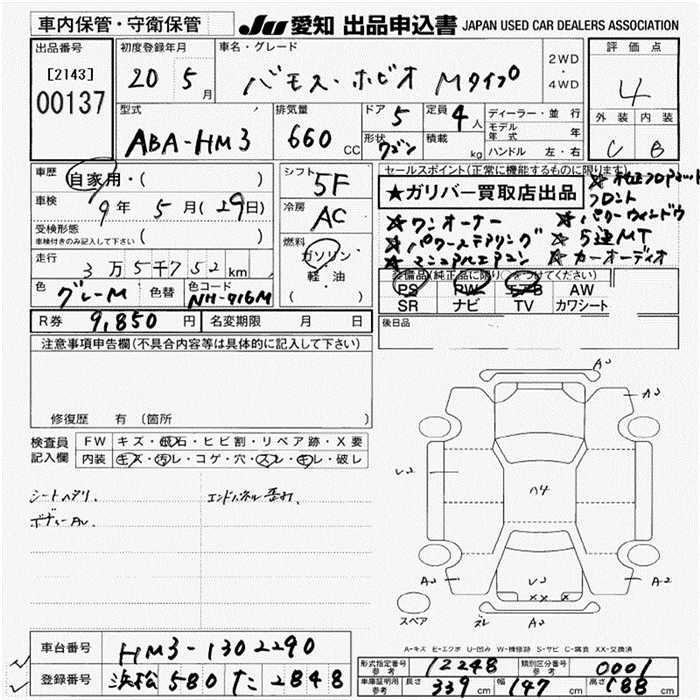 車内保管・守衛保管
JU 愛知 出品申込書 JAPAN USED CAR DEALERS ASSOCIATION
出品番号
[2143]
00137
初度登録年月
20 5月
車名・グレード
バモス・ホビオ Mタイプ
2WD
・
4WD
評価点
4
外装 内装
C B
型式
ABA-HM3
排気量
660 CC
ドア 5
定員 4人
形状 ワゴン
積載 kg
ディーラー・並行
モデル年式 年
ハンドル 左・右
車歴
自家用・( )
車検
9年5月(29日)
受検形態
車検付きのみ記入して下さい ( )
走行
3万5千752km
色 グレーM
色替
色コード NH-716M
シフト 5F
冷房 AC
燃料
ガソリン
軽・油
( )
セールスポイント(正常に機能するものに限ります)
★ガリバー買取店出品
★ワンオーナー
★パワーステアリング
★マニュアルエアコン
フロント
★パワーウィンドウ
★5速MT
★カーオーディオ
装備品(純正品に限り○をつけてください)
PS PW エアB AW
SR ナビ TV カワシート
R券 9,850円
名変期限 月 日
後日品
注意事項申告欄(不具合内容等は具体的に記入して下さい)
修復歴 有 (箇所
検査員記入欄
FW キズ・飛石・ヒビ割・リペア跡・X要
内装 キズ・汚レ・コゲ・穴・スレ・キレ・破レ
シートヘタリ.
エンドパネル歪み.
A2
U2
A2
A2
スペア
A-キズ E-エクボ U-凹み W-補修跡 S-サビ C-腐食 XX-交換済
車台番号 HM3-1302290
登録番号 浜松 580 た 2848
形式指定番号 参考 12248
類別区分番号 参考 0001
車庫証明用 参考 長さ 339cm 幅 147cm 高さ 188cm